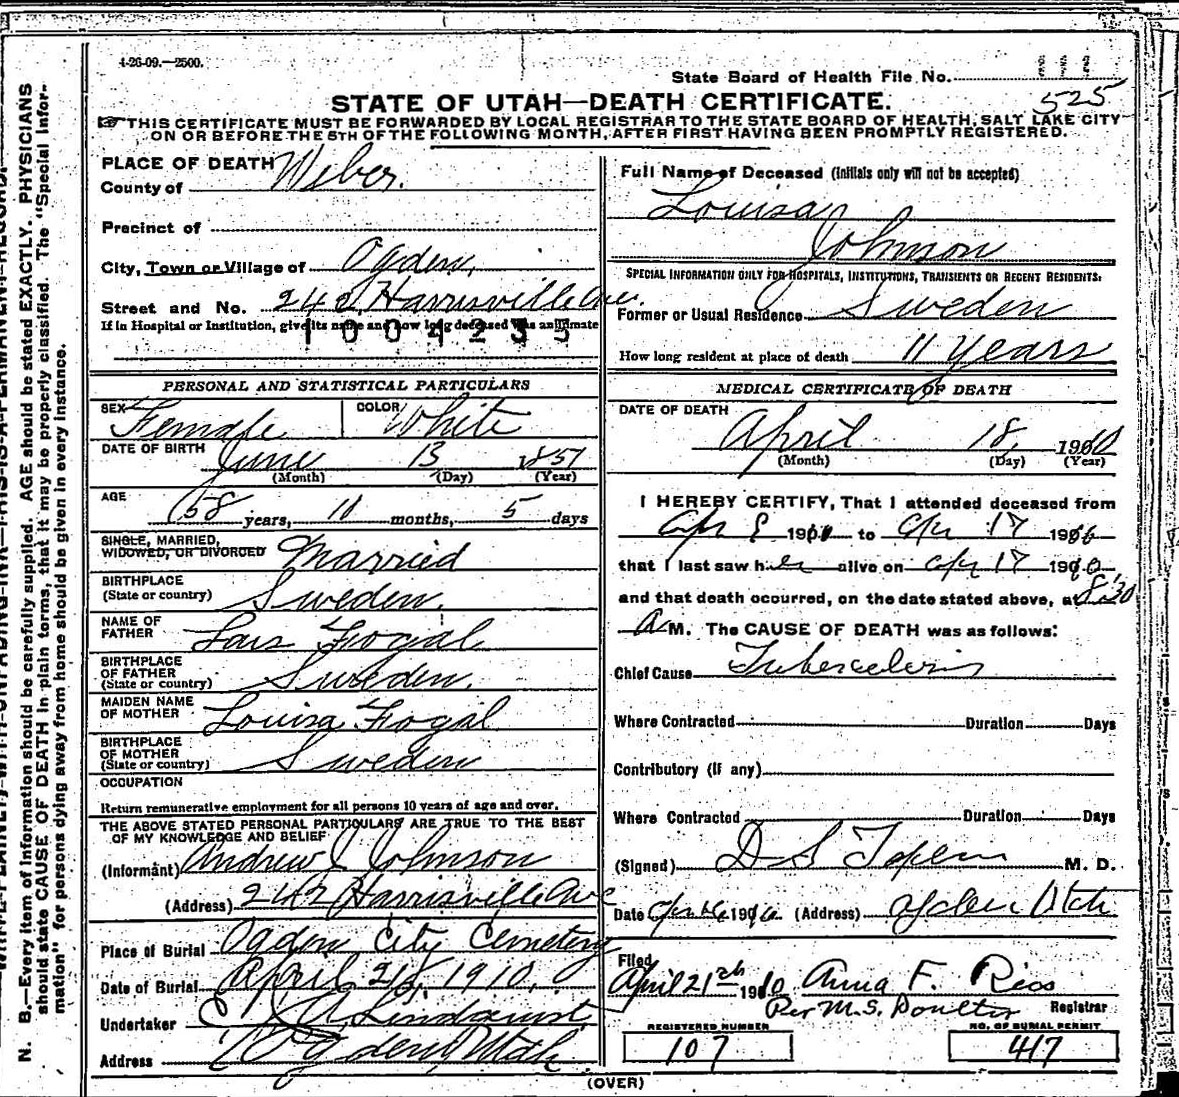 4-26-09.—2500.
State Board of Health File No. 525
STATE OF UTAH—DEATH CERTIFICATE.
THIS CERTIFICATE MUST BE FORWARDED BY LOCAL REGISTRAR TO THE STATE BOARD OF HEALTH, SALT LAKE CITY
ON OR BEFORE THE 5TH OF THE FOLLOWING MONTH, AFTER FIRST HAVING BEEN PROMPTLY REGISTERED.
PLACE OF DEATH
County of Weber.
Precinct of
City, Town or Village of Ogden.
Street and No. 242 Harrisville Ave.
If in Hospital or Institution, give its name and how long deceased was an inmate
1004235
PERSONAL AND STATISTICAL PARTICULARS
SEX Female COLOR White
DATE OF BIRTH June 13 1851
(Month) (Day) (Year)
AGE 58 years, 10 months, 5 days
SINGLE, MARRIED,
WIDOWED, OR DIVORCED Married
BIRTHPLACE
(State or country) Sweden.
NAME OF
FATHER Lars Frogal
BIRTHPLACE
OF FATHER
(State or country) Sweden.
MAIDEN NAME
OF MOTHER Louisa Frogal
BIRTHPLACE
OF MOTHER
(State or country) Sweden
OCCUPATION
Return remunerative employment for all persons 10 years of age and over.
THE ABOVE STATED PERSONAL PARTICULARS ARE TRUE TO THE BEST
OF MY KNOWLEDGE AND BELIEF
(Informant) Andrew J Johnson
(Address) 242 Harrisville Ave
Place of Burial Ogden City Cemetery
Date of Burial April 21, 1910.
Undertaker C J A Lindquist
Address Ogden Utah.
Full Name of Deceased (initials only will not be accepted)
Louisa
Johnson
SPECIAL INFORMATION ONLY FOR HOSPITALS, INSTITUTIONS, TRANSIENTS OR RECENT RESIDENTS:
Former or Usual Residence Sweden
How long resident at place of death 11 years
MEDICAL CERTIFICATE OF DEATH
DATE OF DEATH
April 18, 1910
(Month) (Day) (Year)
I HEREBY CERTIFY, That I attended deceased from
Apr 8 1910 to Apr 17 1910
that I last saw her alive on Apr 17 1910
and that death occurred, on the date stated above, at 8:30
A M. The CAUSE OF DEATH was as follows:
Chief Cause Tuberculosis
Where Contracted Duration Days
Contributory (if any)
Where Contracted Duration Days
(Signed) D S M. D.
Date 1910 (Address) Ogden Utah
Filed
April 21st 1910 Anna F. Rios
Per M.S. Poulter Registrar
REGISTERED NUMBER
107
NO. OF BURIAL PERMIT
417
(OVER)
N. B.—Every item of information should be carefully supplied. AGE should be stated EXACTLY. PHYSICIANS
should state CAUSE OF DEATH in plain terms, that it may be properly classified. The "Special Infor-
mation" for persons dying away from home should be given in every instance.